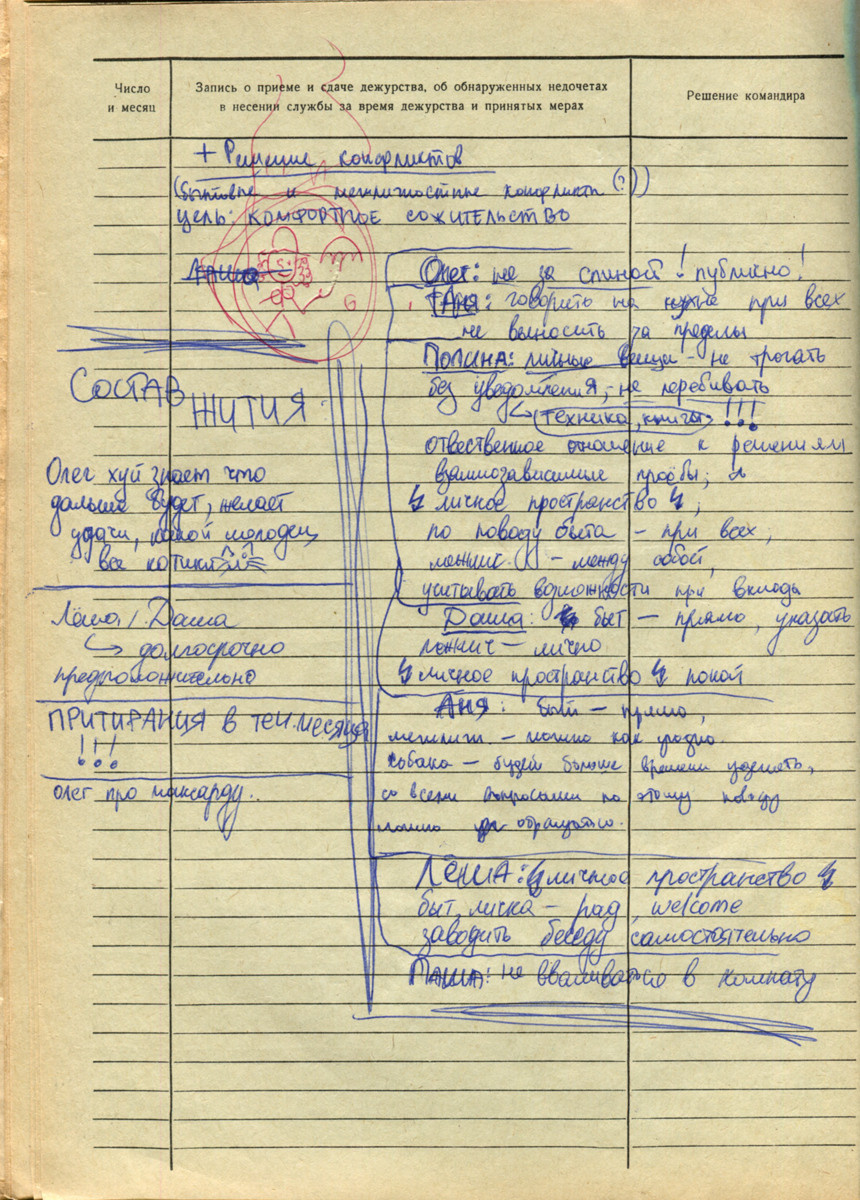 Число
и месяц
Запись о приеме и сдаче дежурства, об обнаруженных недочетах
в несении службы за время дежурства и принятых мерах
Решение командира
+ Решение конфликтов
(бытовые и межличностные конфликты (?))
цель: КОМФОРТНОЕ СОЖИТЕЛЬСТВО
СОСТАВ
ЖИТИЯ
Олег хуй знает что
дальше будет, желает
удачи, какой молодец,
все котики
Лёша / Даша
долгосрочно
предположительно
ПРИТИРАНИЯ В теч. месяца
!!!
олег про мансарду..
Олег: не за спиной! публично!
Аня: говорить на кухне при всех
не выносить за пределы
Полина: личные вещи – не трогать
без уведомления, – не перебивать
техника, книги !!!
отвественное отношение к решениям
взаимозависимые просьбы;
личное пространство ;
по поводу быта – при всех,
межлич. – между собой,
учитывать возможности при вкладе
Даша: быт – прямо, указать
межлич – лично
личное пространство покой
Аня: быт – прямо,
межлич. – можно как угодно.
собака – будем больше времени уделять,
со всеми вопросами по этому поводу
можно обращаться.
ЛЁША: личное пространство
быт, личка – рад, welcome
заводить беседу самостоятельно
ПАША: не вваливаться в комнату